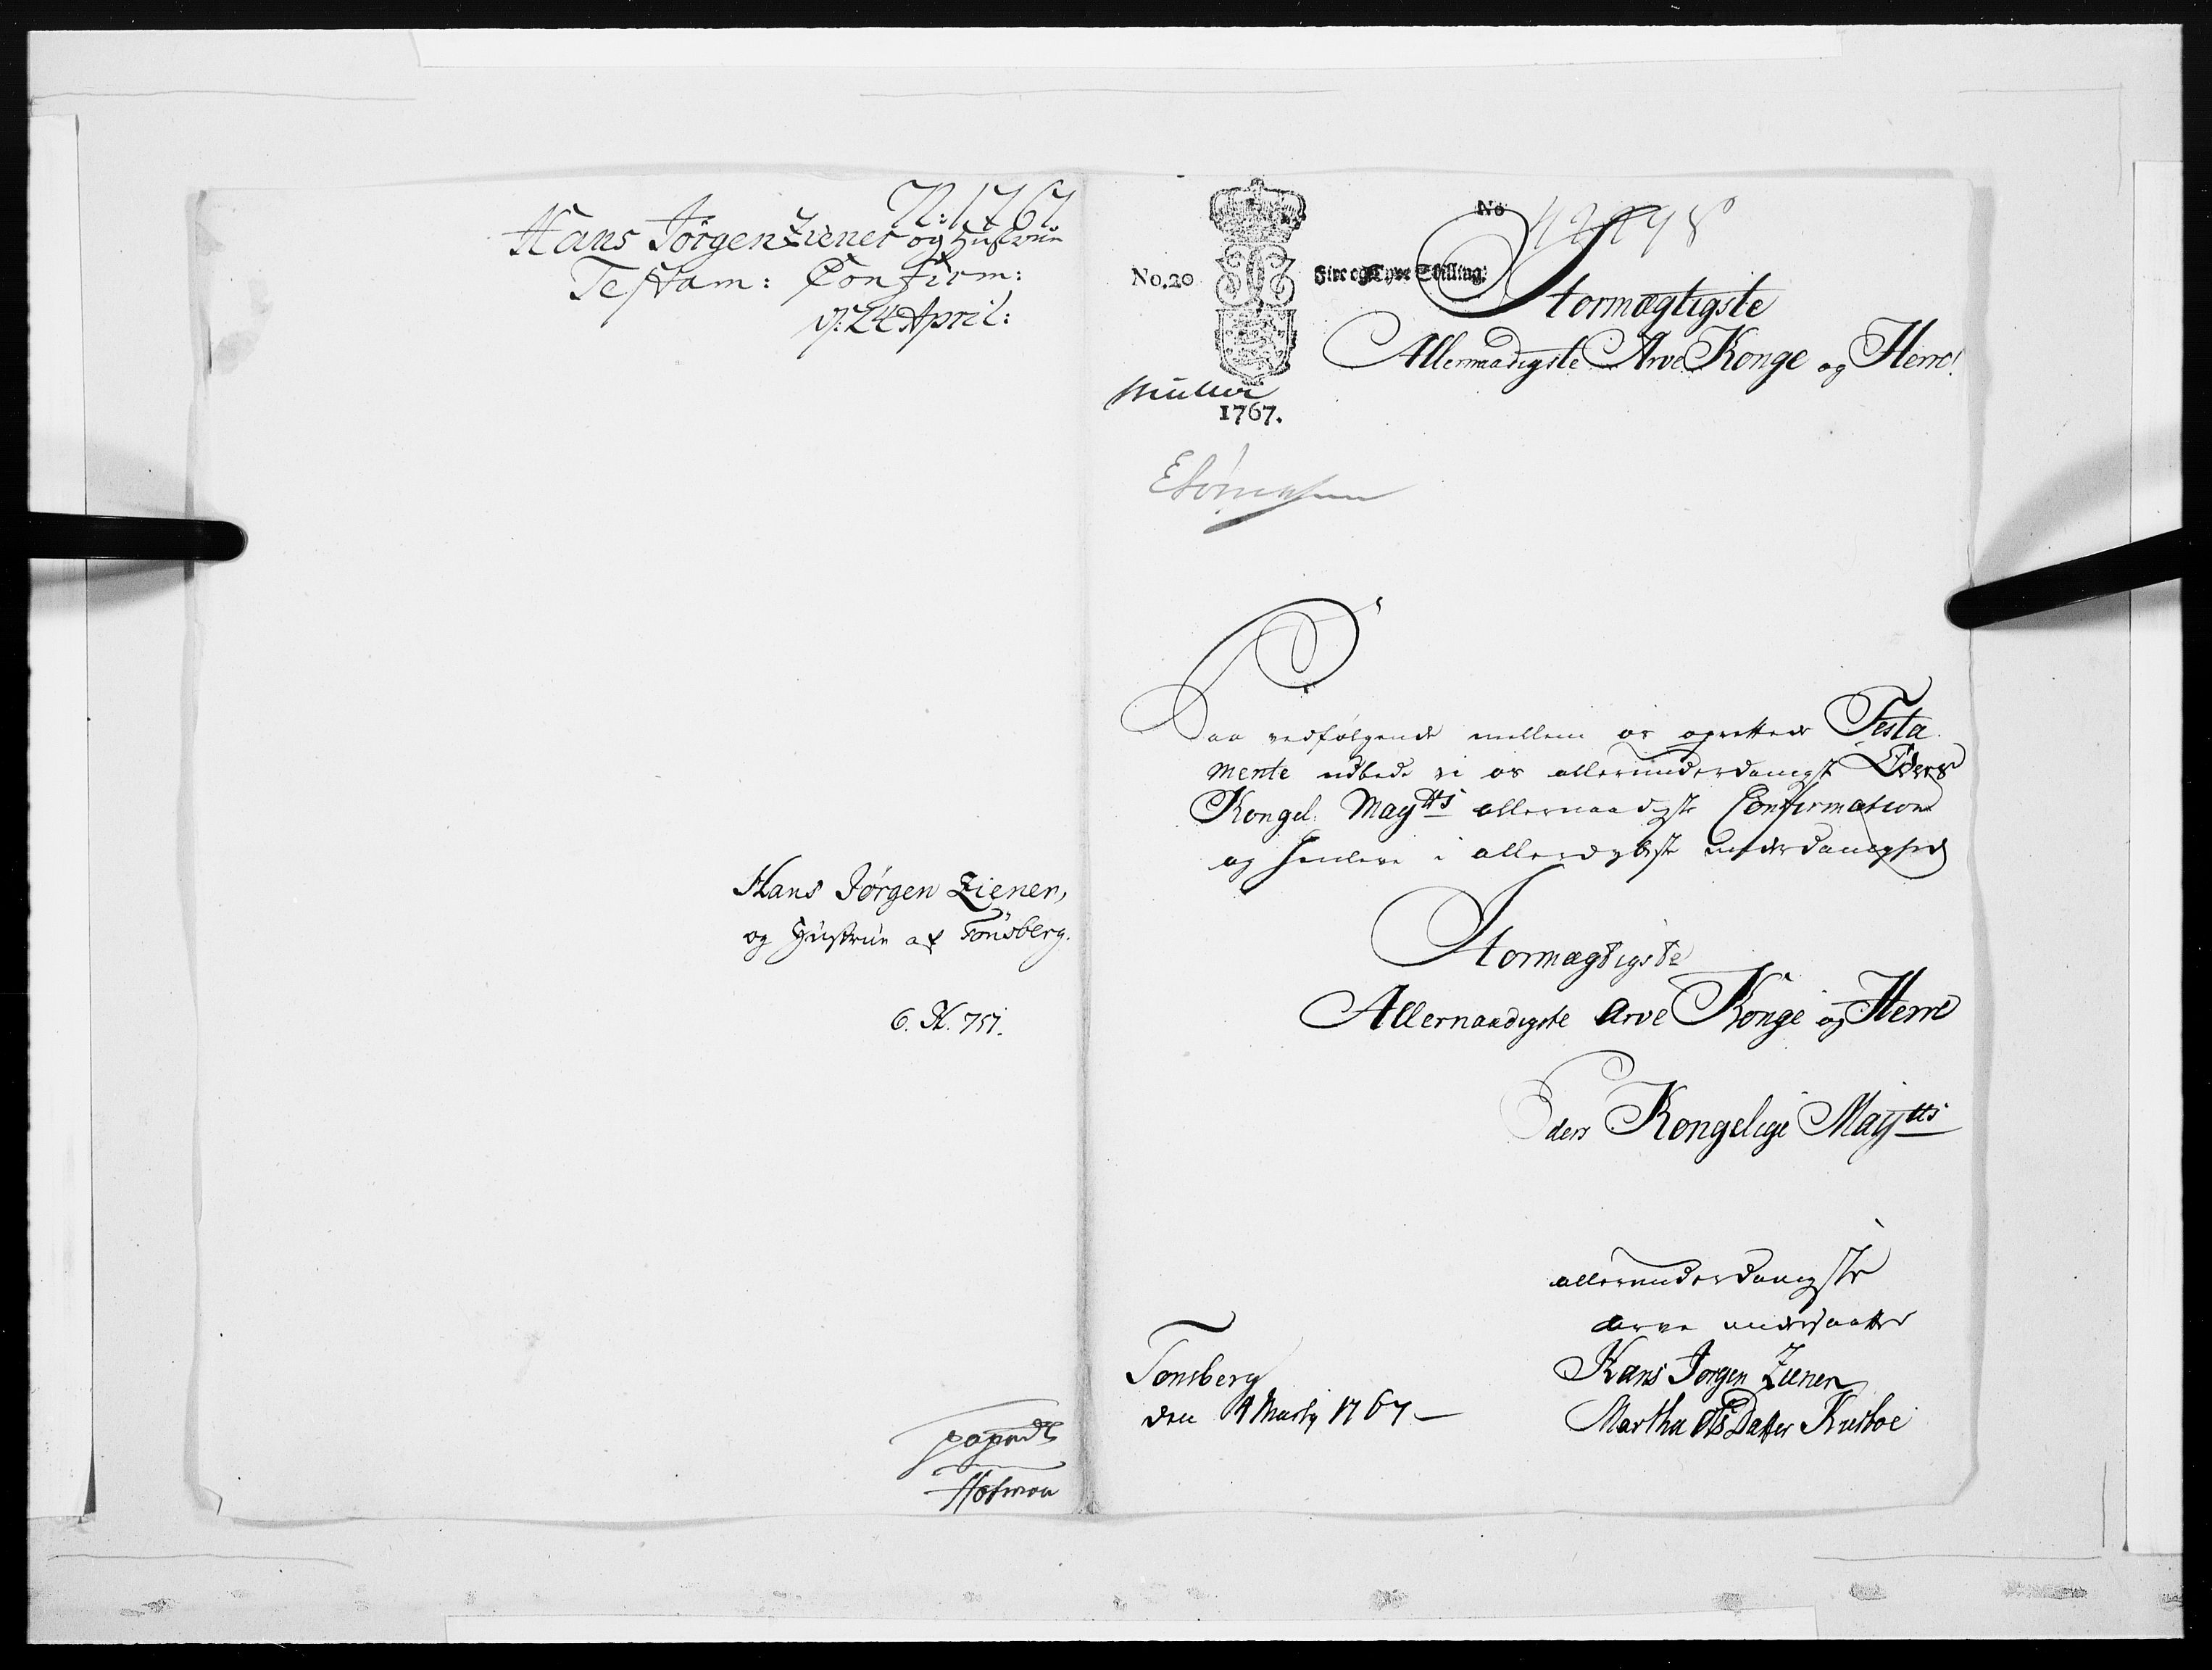 N: 1767
Hans Jörgen Ziener og Hustrue
Testam: Confirm:
d: 24 April:
Hans Jörgen Ziener,
og Hustrue af Tönsberg.
6. N. 757.
Hofman
No
No. 20
Fire og Tyve Skilling.
Stormægtigste
Allernaadigste Arve Konge og Herre!
Müller
1767.
Paa vedfølgende mellem os oprettede Testa
mente udbede vi os allerunderdanigst Eders
Kongel: Maytts allernaadigste Confirmation
og henleve i allerdybeste underdanighed
Stormægtigste
Allernaadigste Arve Konge og Herre
Eders Kongelige Maytts
allerunderdanigste
arve undersaatter
Tonsberg
den 4 Marty 1767
Hans Jörgen Ziener
Martha Datter